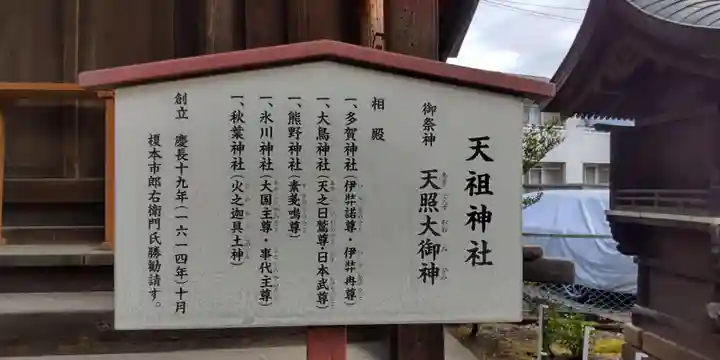 天祖神社
御祭神 天照大御神
相殿
一、多賀神社(伊弉諾尊・伊弉冉尊)
一、大鳥神社(天之日鷲尊・日本武尊)
一、熊野神社(素戔嗚尊)
一、氷川神社(大国主尊・事代主尊)
一、秋葉神社(火之迦具土神)
創立 慶長十九年(一六一四年)十月
榎本市郎右衛門氏勝勧請す。